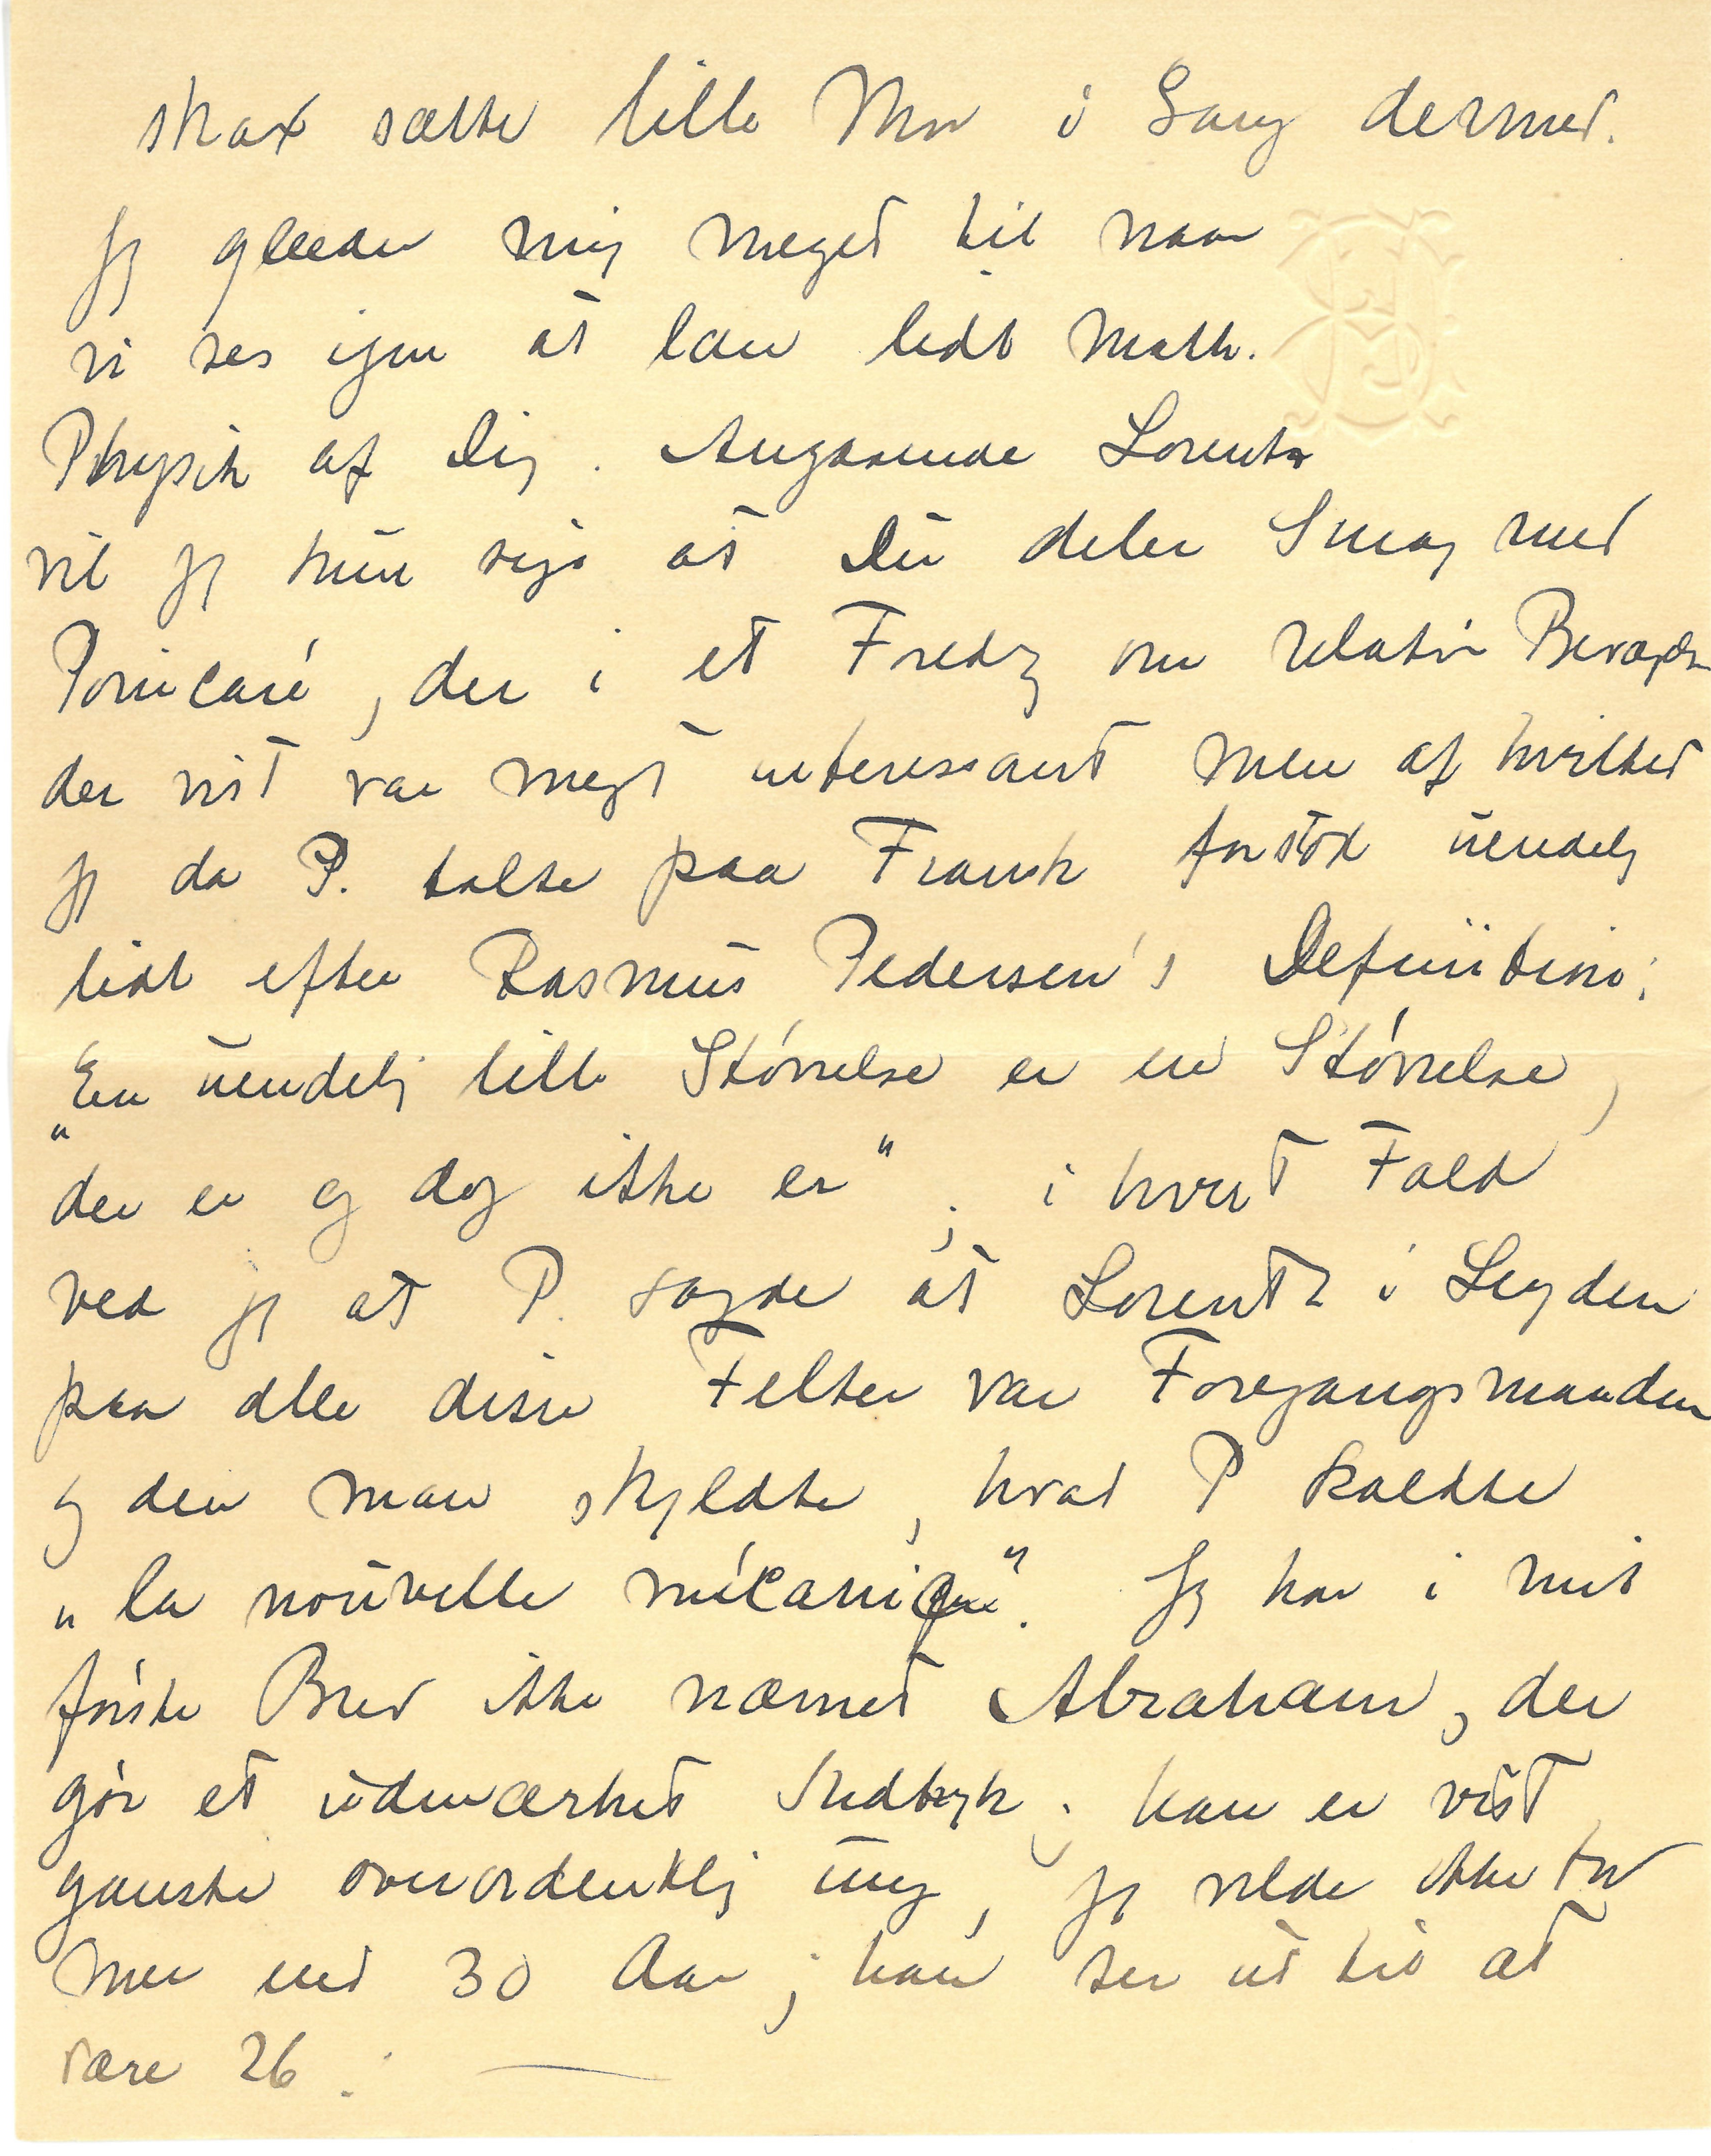 strax sætte lille Mor i Gang dermed.
Jeg glæder mig meget til naar
vi ses igen at lære lidt Math.
Physik af Dig. Angaaende Lorentz
vil jeg kun sige at Du deler Smag med
Poincaré, der i et Foredrag om relativ Bevægelse
der vist var meget interessant men af hvilket
jeg da P. talte paa Fransk forstod uendelig
lidt efter Rasmus Pedersen's Definition:
"En uendelig lille Størrelse er en Størrelse,
der er og dog ikke er"; i hvert Fald
ved jeg at P. sagde at Lorentz i Leyden
paa alle disse Felter var Foregangsmanden
og den man skyldte, hvad P kaldte
„la nouvelle mécanique". Jeg har i mit
første Brev ikke nævnet Abraham, der
gør et udmærket Indtryk; han er vist
ganske overordentlig ung, jeg vilde ikke tro
mer end 30 Aar; han ser ut til at
være 26.